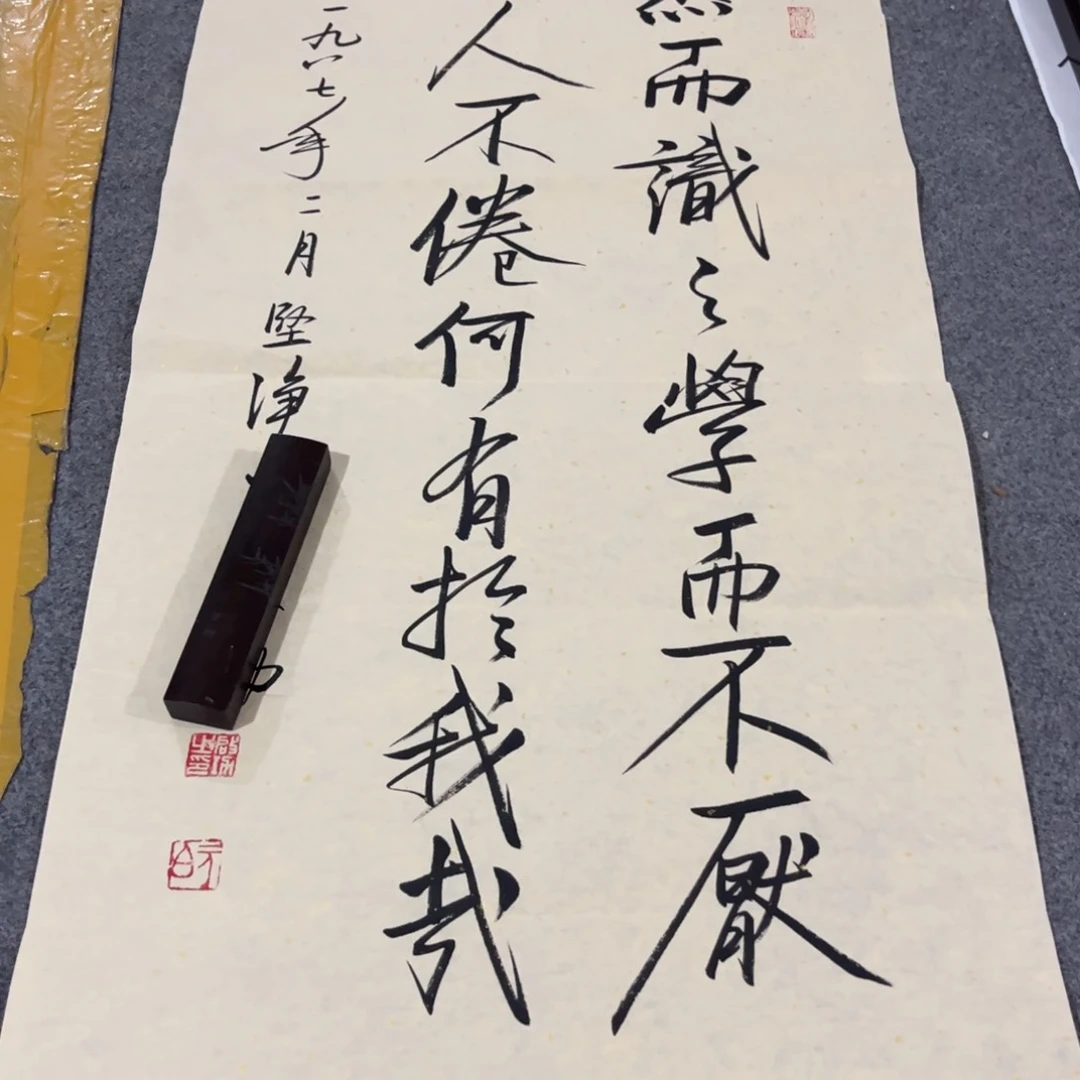 而識之學而不厭
人不倦何有於我哉
一九八七年二月堅淨